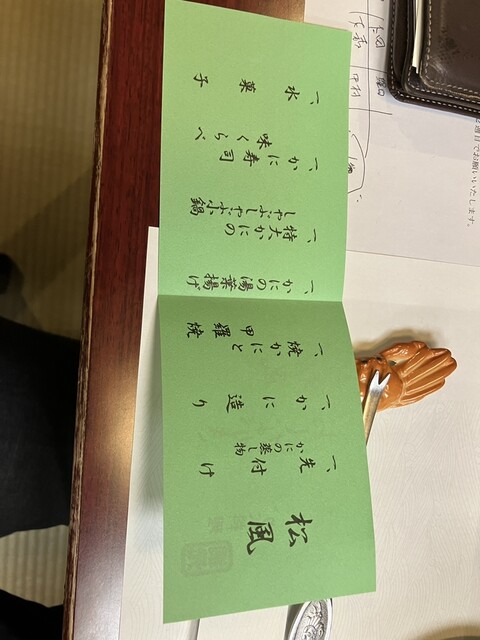 松風
一、先付け
かにの蒸し物
一、かに造り
一、焼かにと
甲羅焼
一、かにの湯葉揚げ
一、特大かにの
しゃぶしゃぶ鍋
一、かに寿司
味くらべ
一、水菓子
週目でお願いいたします。